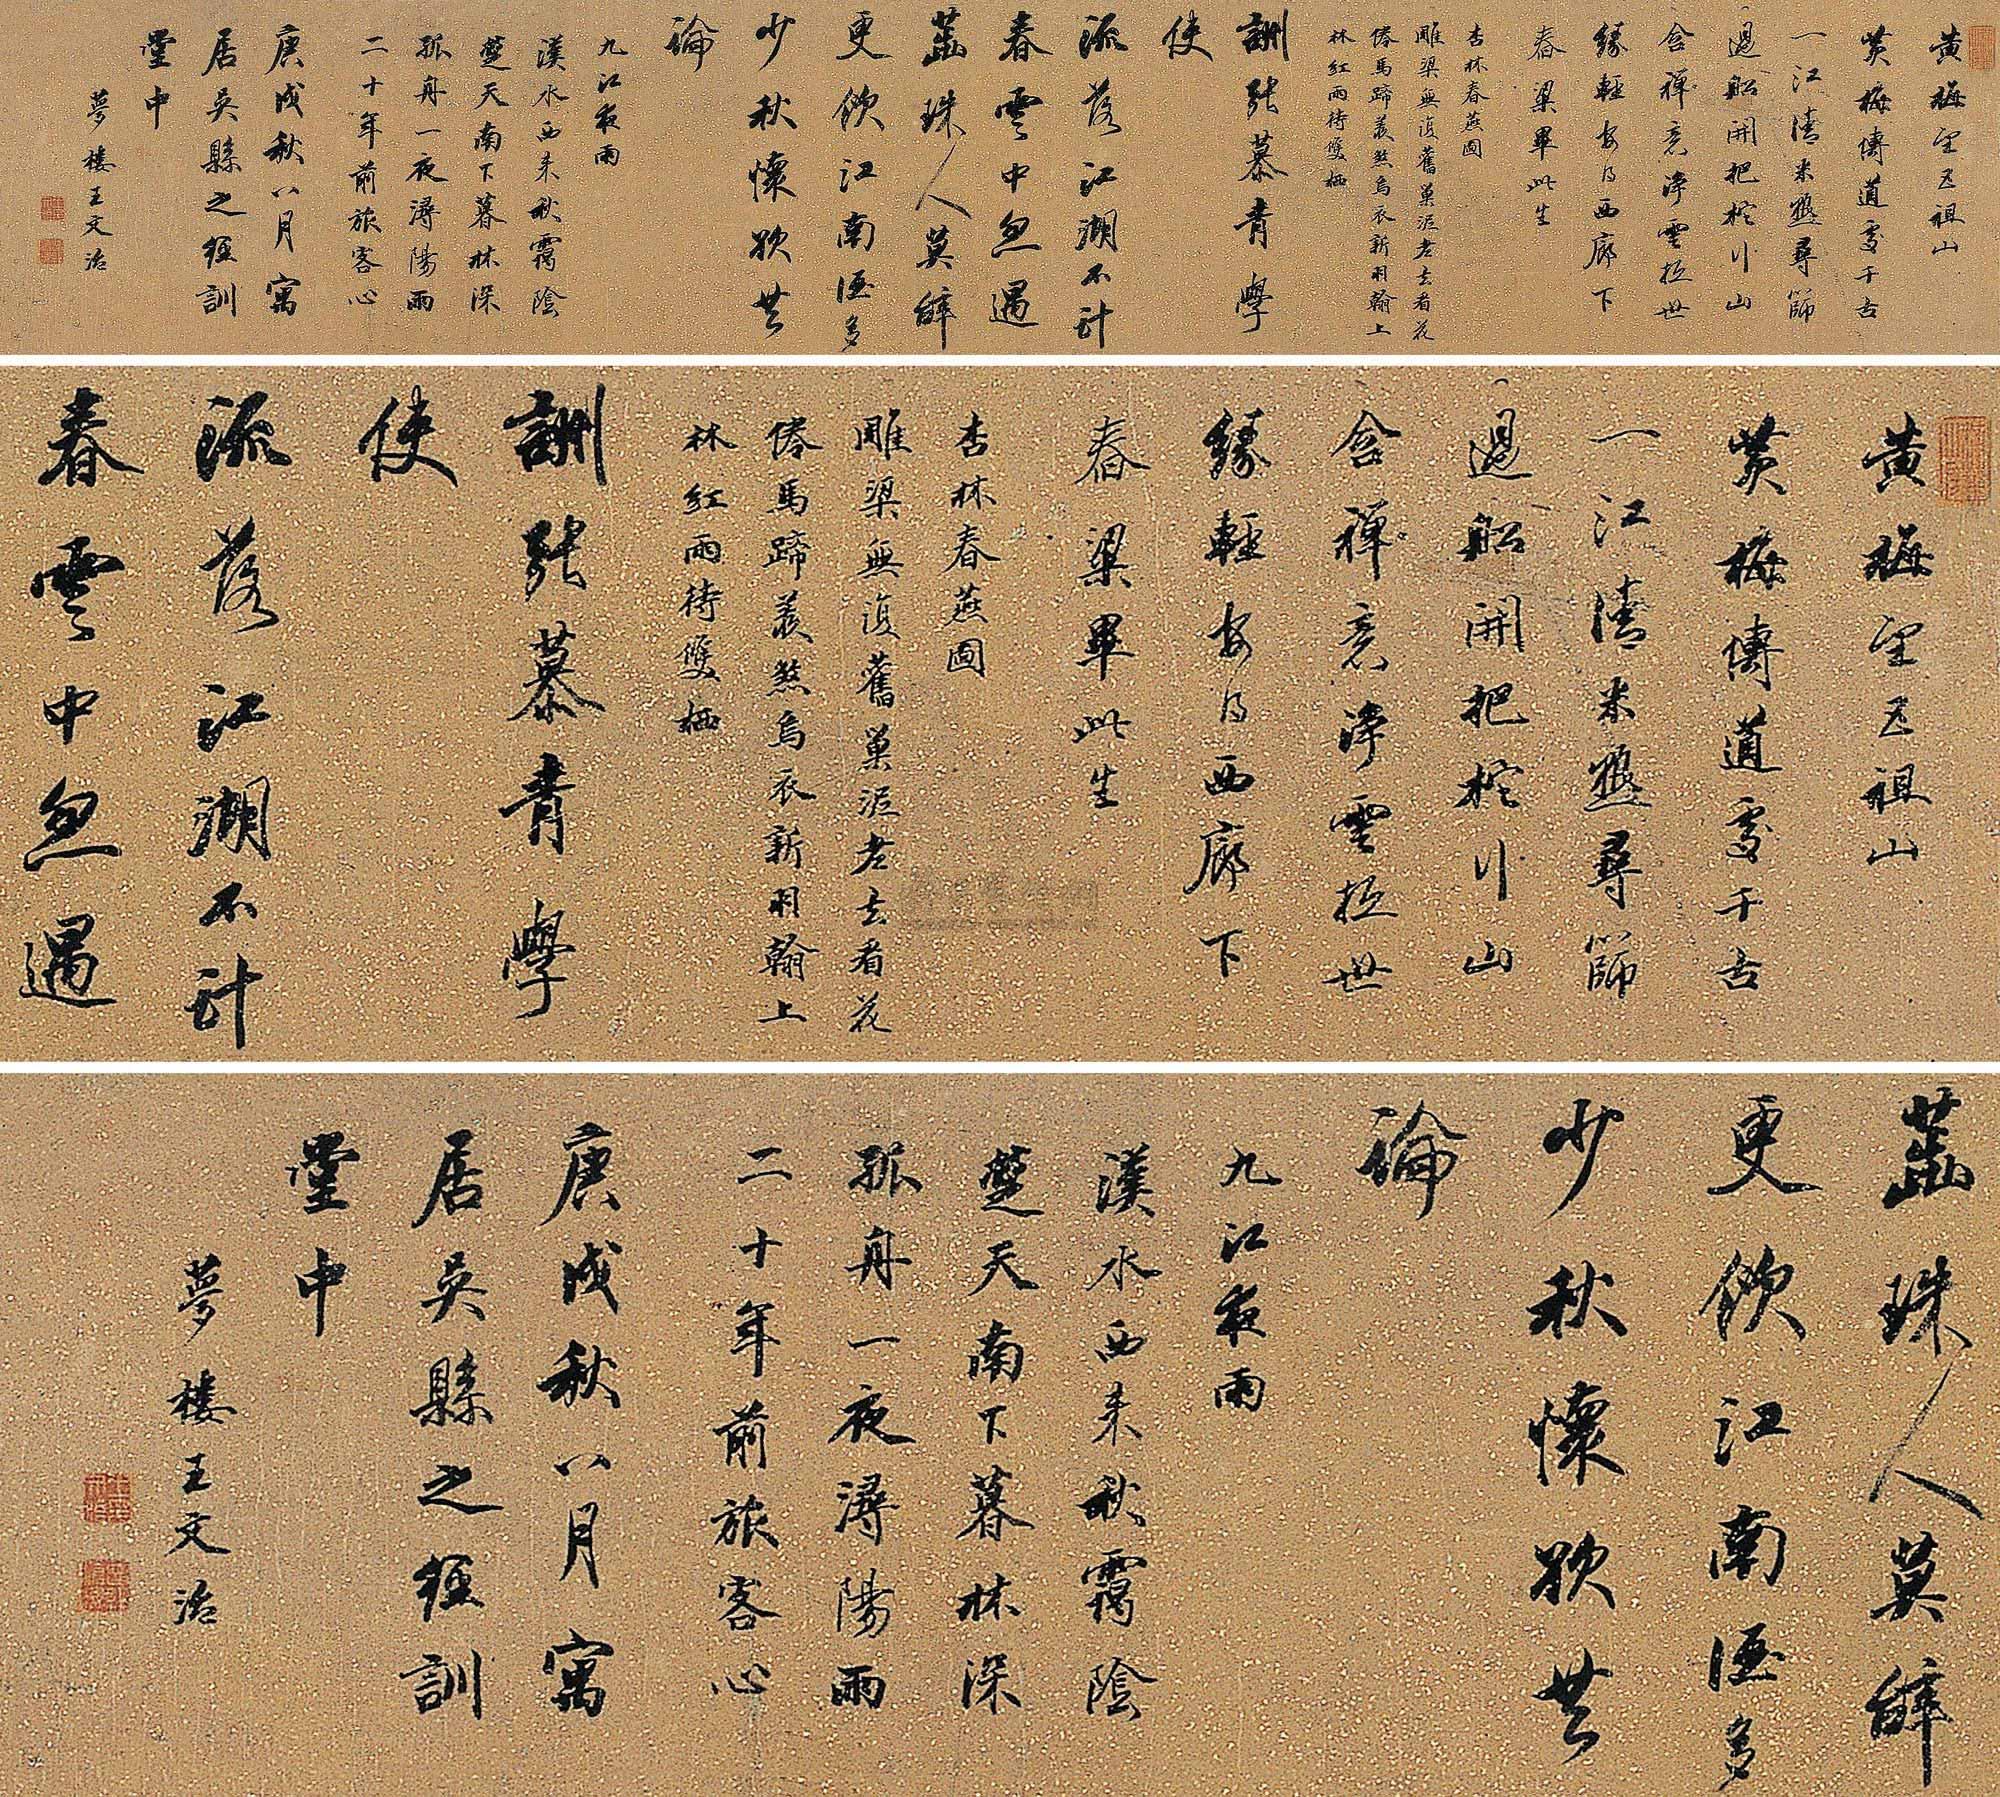 黄梅望五祖山
黄梅傳道處千古
一江清未盡尋師
過船開把柁行山
含禪意淨雲拒世
緣輕安得西廊下
舂粱畢此生
杏林春燕圖
雕梁無復舊巢泥老去看花
倦馬蹄羨煞烏衣新羽翰上
林紅雨待雙栖
詶張慕青學
使
流落江湖不計
春雲中忽遇
蕊珠人莫辭
更飲江南酒多
少秋懷欲共
論
九江夜雨
漢水西來秋靄陰
楚天南下暮林深
孤舟一夜潯陽雨
二十年前旅客心
庚戌秋八月寓
居吳縣之經訓
堂中
夢樓王文治
黄梅望五祖山
黄梅傳道處千古
一江清未盡尋師
過船開把柁行山
含禪意淨雲拒世
緣輕安得西廊下
舂粱畢此生
杏林春燕圖
雕梁無復舊巢泥老去看花
倦馬蹄羨煞烏衣新羽翰上
林紅雨待雙栖
詶張慕青學
使
流落江湖不計
春雲中忽遇
蕊珠人莫辭
更飲江南酒多
少秋懷欲共
論
九江夜雨
漢水西來秋靄陰
楚天南下暮林深
孤舟一夜潯陽雨
二十年前旅客心
庚戌秋八月寓
居吳縣之經訓
堂中
夢樓王文治